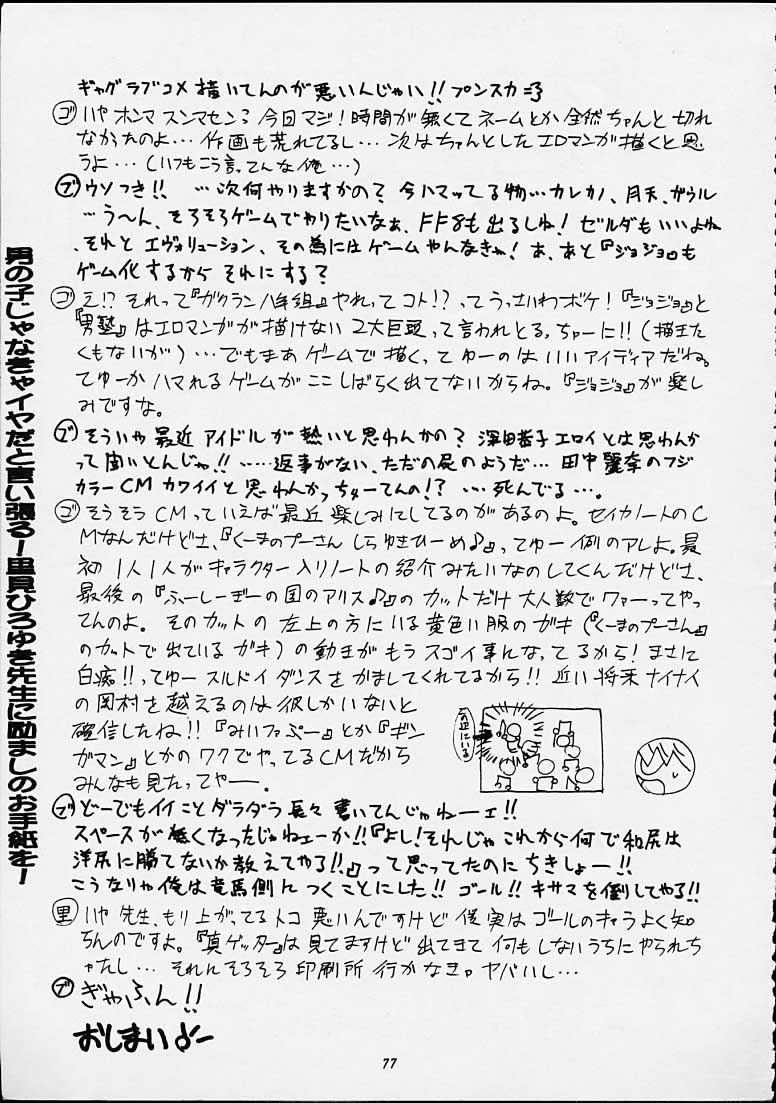 ギャグラブコメ描いてんのが悪いんじゃい!!プンスカ=3
ゴ いやホンマスンマセン？今回マジ！時間が無くてネームとか全然ちゃんと切れ
なかったのよ…作画も荒れてるし…次はちゃんとしたエロマンガ描くと思
うよ…(いつもこう言ってんな俺…)
ブ ウソつき!!…次何やりますかの？今ハマッてる物…カレカノ、月天、ガウル
…う〜ん、そろそろゲームでやりたいなぁ、FF8も出るしね！ゼルダもいいよね
、それとエヴォリューション、その為にはゲームやんなきゃ！あ、あと『ジョジョ』も
ゲーム化するからそれにする？
ゴ え!?それって『ガクラン八年組』やれってコト!?ってうっさいわボケ！『ジョジョ』と
『男塾』はエロマンガが描けない2大巨頭って言われとる、ちゅーに!!(描きた
くもないが)…でもまあゲームで描くってゆーのはいいアイディアだね。
てゆーかハマれるゲームがここしばらく出てないからね。『ジョジョ』が楽し
みですな。
ブ そういや最近アイドルが熱いと思わんかの？深田恭子エロイとは思わんか
って聞いとんじゃ!!……返事がない、ただの屍のようだ…田中麗奈のフジ
カラーCMカワイイと思わんかっちゅーてんの!?…死んでる…。
ゴ そうそうCMっていえば最近楽しみにしてるのがあるのよ。セイカノートのC
Mなんだけどさ、『くーまのプーさんしらゆきひーめ♪』ってゆー例のアレよ。最
初1人1人がキャラクター入りノートの紹介みたいなのしてくんだけどさ、
最後の『ふーしーぎーの国のアリス♪』のカットだけ大人数でワァーってやっ
てんのよ。そのカットの左上の方にいる黄色い服のガキ(『くーまのプーさん』
のカットで出ているガキ)の動きがもうスゴイ事になってるから！まさに
白痴!!ってゆースルドイダンスをかましてくれてるから!!近い将来ナイナイ
の岡村を越えるのは彼しかいないと
確信したね!!『みいファぷー』とか『ギン
ガマン』とかのワクでやってるCMだから
みんなも見たってやー。
この辺にいる
ブ どーでもイイことダラダラ長々書いてんじゃねーェ!!
スペースが無くなったじゃねェーか!!『よし！それじゃこれから何で和尻は
洋尻に勝てないか教えてやる!!』って思ってたのにちきしょー!!
こうなりゃ俺は竜馬側につくことにした!!ゴール!!キサマを倒してやる!!
里 いや先生、もり上がってるトコ悪いんですけど僕実はゴールのキャラよく知
らんのですよ。『真ゲッター』は見てますけど出てきて何もしないうちにやられち
ゃたし…それにそろそろ印刷所行かなきゃヤバいし…
ブ ぎゃふん!!
おしまい♪ー
男の子じゃなきゃイヤだと言い張る！里見ひろゆき先生に励ましのお手紙を！
77